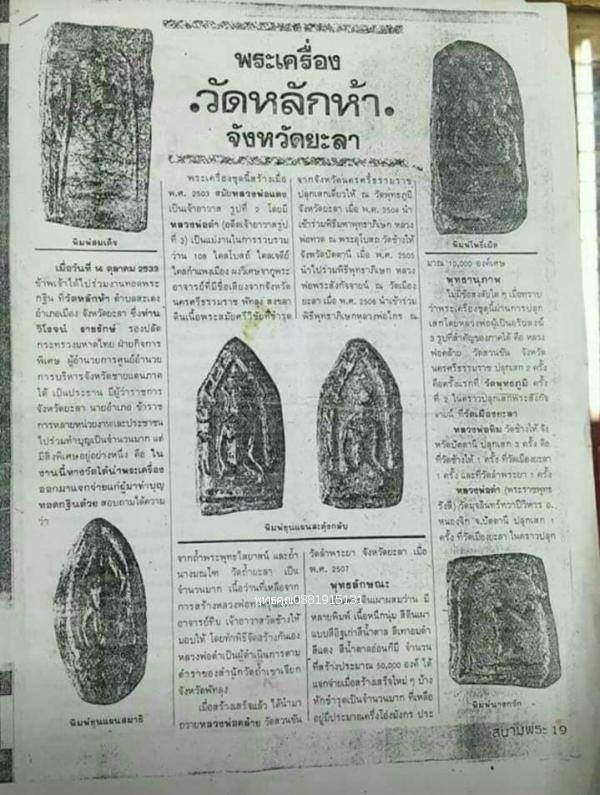 พระเครื่อง
.วัดหลักห้า.
จังหวัดยะลา
พิมพ์สมเด็จ
เมื่อวันที่ 14 ตุลาคม 2533
ข้าพเจ้าได้ไปร่วมงานทอดพระ
กฐิน ที่วัดหลักห้า ตำบลสะเตง
อำเภอเมือง จังหวัดยะลา ซึ่งท่าน
วิโรจน์ ราชรักษ์ รองปลัด
กระทรวงมหาดไทย ฝ่ายกิจการ
พิเศษ ผู้อำนวยการศูนย์อำนวย
การบริหารจังหวัดชายแดนภาค
ใต้ เป็นประธาน มีผู้ว่าราชการ
จังหวัดยะลา นายอำเภอ ข้าราช
การหลายหน่วยงานและประชาชน
ไปร่วมทำบุญเป็นจำนวนมาก แต่
มีสิ่งพิเศษอยู่อย่างหนึ่ง คือ ใน
งานนี้ทางวัดได้นำพระเครื่อง
ออกมาแจกจ่ายแก่ผู้มาทำบุญ
ทอดกฐินด้วย สอบถามได้ความ
ว่า
พิมพ์ขุนแผนสมาธิ
พระเครื่องชุดนี้สร้างเมื่อ
พ.ศ. 2503 สมัยหลวงพ่อแดง
เป็นเจ้าอาวาส รูปที่ 2 โดยมี
หลวงพ่อดำ (อดีตเจ้าอาวาสรูป
ที่ 3) เป็นแม่งานในการรวบรวม
ว่าน 108 ไคลโบสถ์ ไคลเจดีย์
ไคลกำแพงเมือง ผงวิเศษจากพระ
อาจารย์ที่มีชื่อเสียงจากจังหวัด
นครศรีธรรมราช พัทลุง สงขลา
ดินเนื้อพระสมัยศรีวิชัยที่ชำรุด
พิมพ์ขุนแผนสะดุ้งกลับ
จากถ้ำพระพุทธไสยาสน์ และถ้ำ
นางมณโฑ วัดถ้ำยะลา เป็น
จำนวนมาก เนื้อว่านที่เหลือจาก
การสร้างหลวงพ่อทวด
อาจารย์ทิม เจ้าอาวาสวัดช้างให้
มอบให้ โดยทำพิธีจัดสร้างกันเอง
หลวงพ่อดำเป็นผู้ดำเนินการตาม
ตำราของสำนักวัดถ้ำเขาเจียก
จังหวัดพัทลุง
เมื่อสร้างเสร็จแล้ว ได้นำมา
ถวายหลวงพ่อคล้าย วัดสวนขัน
จากจังหวัดนครศรีธรรมราช
ปลุกเสกเดี่ยวให้ ณ วัดพุทธภูมิ
จังหวัดยะลา เมื่อ พ.ศ. 2504 นำ
เข้าร่วมพิธีมหาพุทธาภิเษก หลวง
พ่อทวด ณ พระอุโบสถวัดช้างให้
จังหวัดปัตตานี เมื่อ พ.ศ. 2505
นำไปร่วมพิธีพุทธาภิเษก หลวง
พ่อพระสังกัจจายน์ ณ วัดเมือง
ยะลา เมื่อ พ.ศ. 2506 นำเข้าร่วม
พิธีพุทธาภิเษกหลวงพ่อไกร ณ
วัดลำพระยา จังหวัดยะลา เมื่อ
พ.ศ. 2507
พุทธลักษณะ
ดินเผาผสมว่าน มี
หลายพิมพ์ เนื้อหนึกนุ่ม สีดินเผา
แบบสีอิฐเก่าสีน้ำตาล สีเทาอมดำ
สีแดง สีน้ำตาลอ่อนก็มี จำนวน
ที่สร้างประมาณ 50,000 องค์ ได้
แจกจ่ายเมื่อสร้างเสร็จใหม่ ๆ บ้าง
หักชำรุดเป็นจำนวนมาก ที่เหลือ
อยู่มีประมาณครึ่งโอ่งมังกร ประ
พิมพ์โพธิ์เม็ด
มาณ 10,000 องค์เศษ
พุทธานุภาพ
ไม่มีข้อสงสัยใด ๆ เมื่อทราบ
ว่าพระเครื่องชุดนี้ผ่านการปลุก
เสกโดยหลวงพ่อผู้เป็นอริยสงฆ์
3 รูปที่สำคัญของภาคใต้ คือ หลวง
พ่อคล้าย วัดสวนขัน จังหวัด
นครศรีธรรมราช ปลุกเสก 2 ครั้ง
คือครั้งแรกที่ วัดพุทธภูมิ ครั้ง
ที่ 2 ในคราวปลุกเสกพระสังกัจ
จายน์ ที่วัดเมืองยะลา
หลวงพ่อทิม วัดช้างให้ จัง
หวัดปัตตานี ปลุกเสก 3 ครั้ง คือ
ที่วัดช้างให้ 1 ครั้ง ที่วัดเมืองยะลา
1 ครั้ง และที่วัดลำพระยา 1 ครั้ง
หลวงพ่อดำ (พระราชพุทธ
รังสี) วัดมุจลินทวาปีวิหาร อ.
หนองจิก จ.ปัตตานี ปลุกเสก 1
ครั้ง ที่วัดเมืองยะลา ในคราวปลุก
พิมพ์นาคปรก
สนามพระ 19
พุทธคุณ0881915131